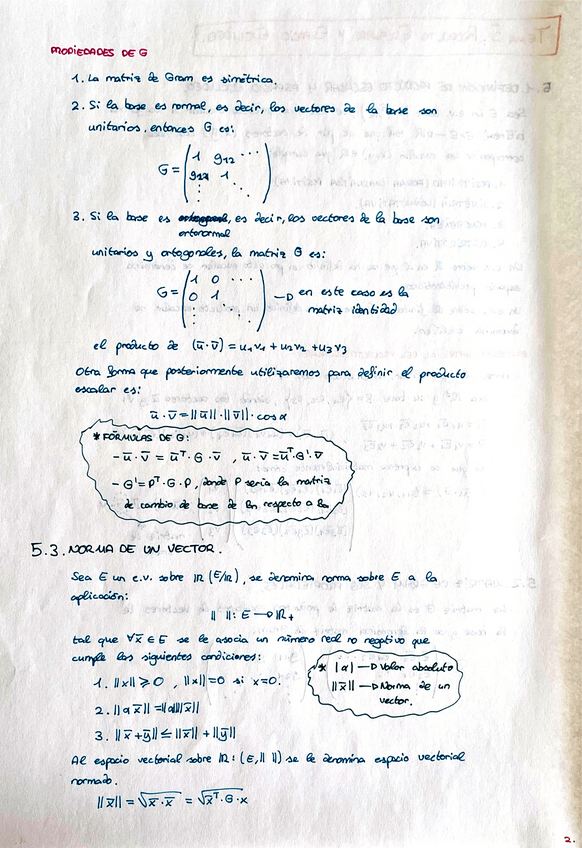 PROPIEDADES DE G
1. La matriz de Gram es simétrica.
2. Si la base es normal, es decir, los vectores de la base son
unitarios, entonces G es:
G = ( 1 g12 ...
g21 1
⋮ ⋱ )
3. Si la base es ortogonal, es decir, los vectores de la base son
ortonormal
unitarios y ortogonales, la matriz G es:
G = ( 1 0 ...
0 1
⋮ ⋱ ) → en este caso es la
matriz identidad
el producto de (ū·v̄) = u1v1 + u2v2 + u3v3
Otra forma que posteriormente utilizaremos para definir el producto
escalar es:
ū · v̄ = ||ū|| · ||v̄|| · cos α
* FÓRMULAS DE G:
- ū · v̄ = ūᵀ · G · v̄ , ū · v̄ = ūᵀ · G' · v̄
- G' = Pᵀ · G · P, donde P sería la matriz
de cambio de base de Bn respecto a la
5.3. NORMA DE UN VECTOR.
Sea E un e.v. sobre ℝ (E/ℝ), se denomina norma sobre E a la
aplicación:
|| ||: E → ℝ+
tal que ∀x̄ ∈ E se le asocia un número real no negativo que
cumple las siguientes condiciones:
1. ||x|| ≥ 0 , ||x|| = 0 si x=0.
2. ||α x̄|| = |α| ||x̄||
3. ||x̄ + ȳ|| ≤ ||x̄|| + ||ȳ||
* |α| → Valor absoluto
||x̄|| → Norma de un
vector.
Al espacio vectorial sobre ℝ: (E, || ||) se le denomina espacio vectorial
normado.
||x̄|| = √(x̄ · x̄) = √(x̄ᵀ · G · x)
2.